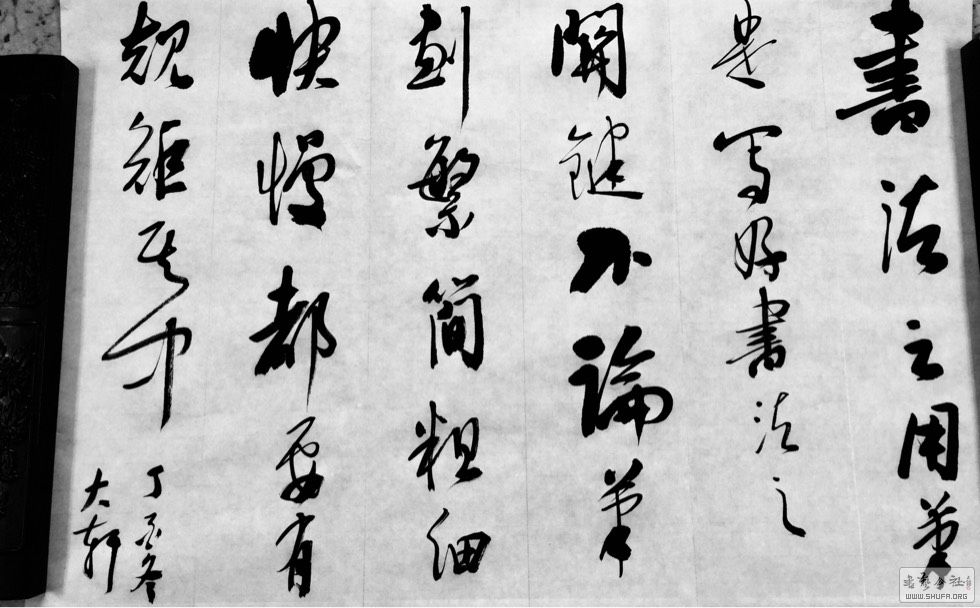 書法之用筆
是写好書法之
關鍵不論筆
劃繁簡粗细
快慢都要有
規矩其中
丁亥冬
大軒
WWW.SHUFA.ORG